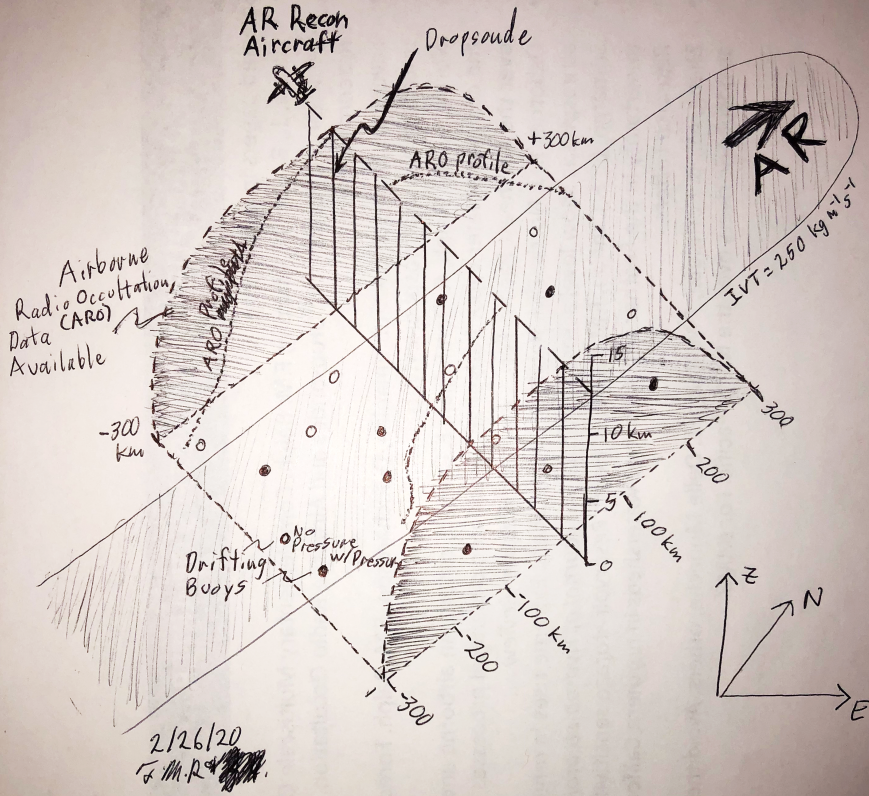 AR Recon
Aircraft
Dropsoude
+300km
ARO profile
AR
IVT = 250 kg m⁻¹ s⁻¹
Airborne
Radio Occultation
Data (ARO)
Available
ARO Profile
-300
km
15
10 km
5
0
300
200
100 km
100 km
-200
-300
No
Pressure
w/Pressure
Drifting
Buoys
Z
N
E
2/26/20